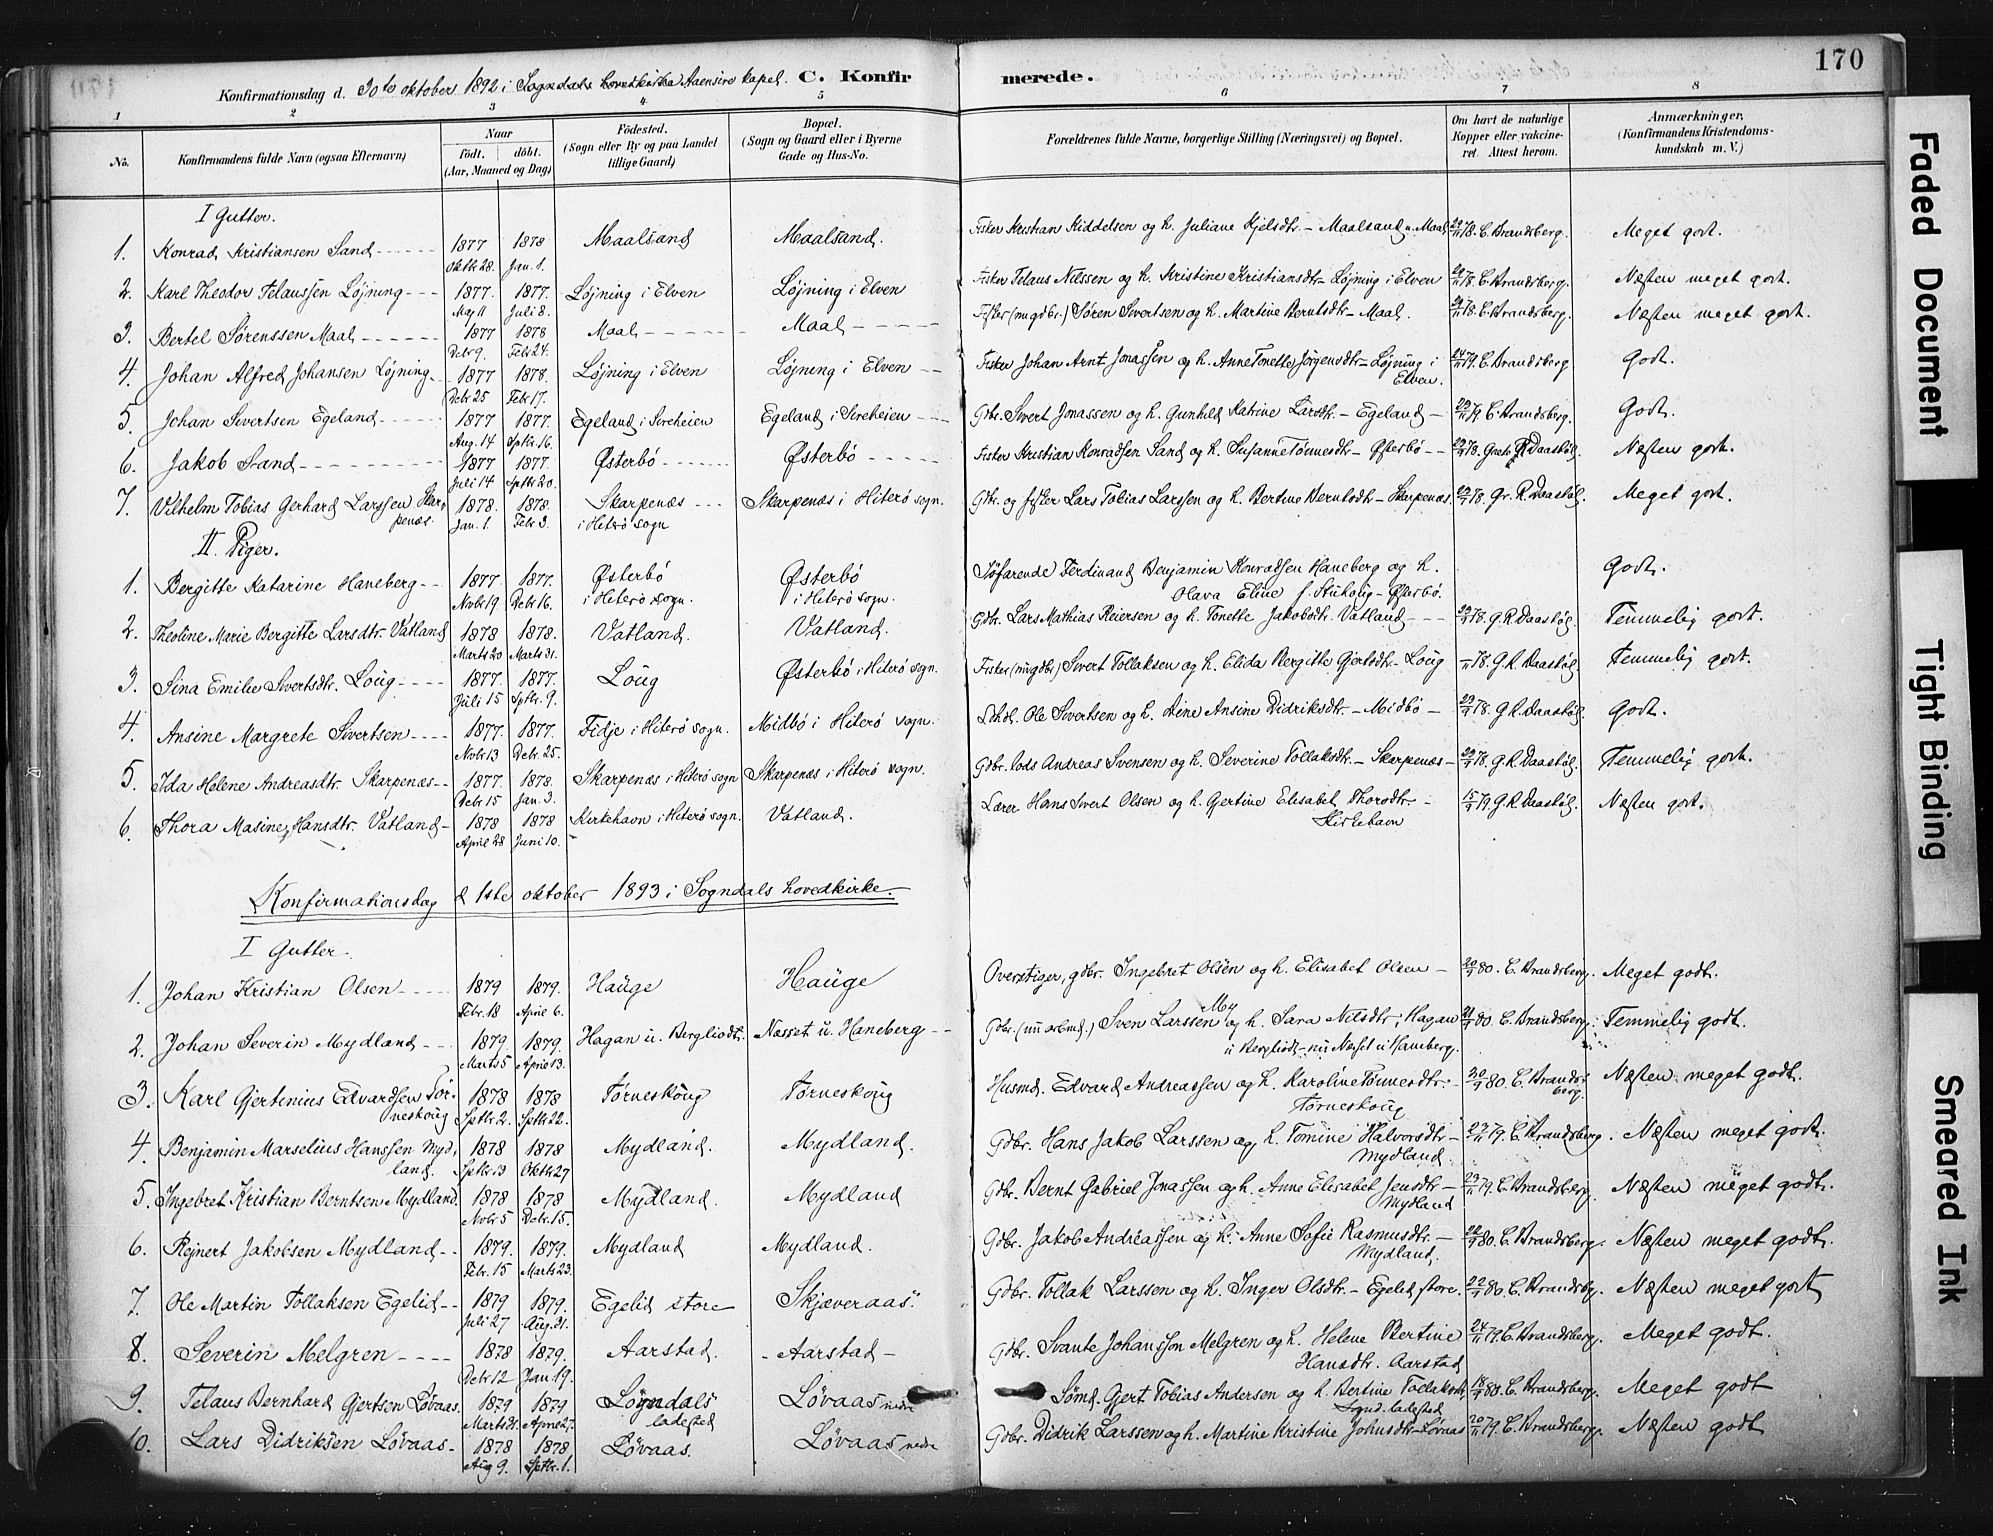 170
C. Konfirmerede.
Konfirmationsdag d. 30te oktober 1892 i Sogndals hovedkirke Aaensire kapel.
1 2 3 4 5 6 7 8
No. Konfirmandens fulde Navn (ogsaa Efternavn) Naar født. døbt. (Aar, Maaned og Dag) Fødested. (Sogn eller By og paa Landet tillige Gaard) Bopæl. (Sogn og Gaard eller i Byerne Gade og Hus-No. Forældrenes fulde Navne, borgerlige Stilling (Næringsvei) og Bopæl. Om havt de naturlige Kopper eller vakcineret. Attest herom. Anmærkninger, (Konfirmandens Kristendomskundskab m. V.)
I Gutter.
1. Konrad Kristiansen Sand 1877 oktbr 28. 1878 Jan. 1. Maalsand Maalsand. Fisker Kristian Kiddelsen og h. Juliane Kjelsdtr. – Maalsand u. Maal 29/11 78. C. Brandsberg. Meget godt.
2. Karl Theodor Telaussen Løjning 1877. Maj 11 1877. Juli 8. Løjning i Elven Løjning i Elven Fisker Telaus Nilssen og h. Kristine Kristiansdtr – Løjning i Elven 78. C. Brandsberg. Næsten meget godt.
3. Bertel Sørenssen Maal 1877 Debr 9. 1878 Febr 24. Maal Maal Fisker (nu gdbr.) Søren Sivertsen og h. Martine Berntsdtr – Maal. 78. C. Brandsberg. Næsten meget godt.
4. Johan Alfred Johansen Løjning 1877 Debr 25 1878. Febr 17. Løjning i Elven Løjning i Elven Fisker Johan Arnt Jonassen og h. Anne Tonette Jørgensdtr – Løjning i Elven. 24/11 79. C. Brandsberg Godt.
5. Johan Sivertsen Egeland 1877 Aug. 14 1877. Sptbr 16. Egeland i Sireheien Egeland i Sireheien Gbr. Sivert Jonassen og h. Gunhild Katrine Larsdtr. – Egeland 29/11 79 C. Brandsberg. Godt.
6. Jakob Sand 1877 Juli 14 1877. Sptbr 20. Østerbø Østerbø Fisker Kristian Konradsen Sand og h. Susanne Tønnesdtr – Østerbø 78. R Daastøl. Næsten godt.
7. Vilhelm Tobias Gerhard Larssen Skarpenæs. 1878. Jan. 1. 1878. Febr 3. Skarpenæs i Hiterø sogn Skarpenæs i Hiterø sogn. Gbr. og fisker Lars Tobias Larssen og h. Bertine Berntsdtr – Skarpenæs. 78. Gr. R. Daastøl. Meget godt.
II. Piger.
1. Bergitte Katarine Haneberg 1877. Novbr 19. 1877. Debr 16. Østerbø i Hiterø sogn. Østerbø i Hiterø sogn. Søfarende Ferdinand Benjamin Konradsen Haneberg og h. Olava Eline f. Stuholig – Østerbø. Godt.
2. Theoline Marie Bergitte Larsdtr. Vatland 1878 Marts 20 1878. Marts 31. Vatland. Vatland. Gdbr. Lars Mathias Reiersen og h. Tonette Jakobsdtr. Vatland 78. G. R. Daastøl. Temmelig godt.
3. Sina Emilie Sivertsdtr. Loug 1877. Juli 15 1877. Sptbr. 9. Loug Østerbø i Hiterø sogn. Fisker (nu gdbr) Sivert Tollaksen og h. Elida Bergitte Gjertsdtr. – Loug 78. G. R. Daastøl. Temmelig godt.
4. Ansine Margrete Sivertsen 1877. Novbr 13 1877. Debr. 25. Fidje i Hiterø sogn. Midbø i Hiterø sogn. Ole Sivertsen og h. Dine Ansine Didriksdtr. – Midbø 78. G. R. Daastøl. Godt.
5. Ida Helene Andreasdtr. Skarpenæs 1877. Debr 15 1878. Jan. 3. Skarpenæs i Hiterø sogn Skarpenæs i Hiterø sogn. Gdbr. lods Andreas Svensen og h. Severine Tollaksdtr. – Skarpenæs – 78. G. R. Daastøl. Temmelig godt.
6. Thora Masine Hansdtr. Vatland 1878 April 28 1878 Juni 10. Kirkehavn i Hiterø sogn. Vatland. Lærer Hans Sivert Olsen og h. Gjertine Elisabet Thorsdtr. – Kirkehavn 15/9 79 G. R. Daastøl. Næsten godt.
Konfirmationsdag d 1ste oktober 1893 i Sogndals hovedkirke.
I Gutter.
1. Johan Kristian Olsen 1879 Febr. 18 1879. April 6. Hauge Hauge Overstiger, gdbr. Ingebret Olsen og h. Elisabet Olsen – 20/9 80. C. Brandsberg. Meget godt.
2. Johan Severin Mydland 1879 Marts 5 1879. April 13. Hagan u. Bergliodt. Næsset u. Haneberg Gdbr. (nu arbmd.) Sven Larssen My og h. Sara Nilsdtr. Hagan u Bergliodt – nu Næset u Haneberg. 21/9 80. C. Brandsberg. Temmelig godt.
3. Karl Gjertinius Edvardsen Tørneskoug 1878 Sptbr 2. 1878 Sptbr 22. Tørneskoug Tørneskoug Husmd. Edvard Andreassen og h. Karoline Tønnesdtr. – Tørneskoug 20/9 80. C. Brandsberg. Næsten meget godt.
4. Benjamin Marselius Hanssen Mydland. 1878 Sptbr 13 1878 Oktbr 27 Mydland. Mydland. Gdbr. Hans Jakob Larssen og h. Tomine Halvorsdtr. – Mydland. 79. C. Brandsberg. Næsten meget godt.
5. Ingebret Kristian Berntsen Mydland. 1878 Novbr 5 1878 Debr. 15. Mydland. Mydland Gdbr. Bernt Gabriel Jonassen og h. Anne Elisabet Jensdtr – Mydland 29/11 79. C. Brandsberg. Næsten meget godt.
6. Rejnert Jakobsen Mydland 1879. Febr. 15 1879. Marts 23. Mydland Mydland. Gdbr. Jakob Andreassen og h. Anne Sofie Rasmusdtr. – Mydland. 22/9 80. C. Brandsberg. Næsten meget godt.
7. Ole Martin Tollaksen Egelid 1879 Juli 27 1879. Aug. 31. Egelid store Skjæveraas. Gdbr. Tollak Larssen og h. Inger Olsdtr. – Egelid store. 22/9 80. C. Brandsbg. Næsten meget godt
8. Severin Melgren 1878 Debr 12 1879. Jan 19. Aarstad. Aarstad Gdbr. Svante Johansson Melgren og h. Helene Bertine Hansdtr. Aarstad 24/11 79 C. Brandsberg. Meget godt.
9. Telaus Bernhard Gjertsen Løvaas. 1879 Marts 21. 1879 April 27. Sogndals ladested Løvaas nedre Sømd. Gjert Tobias Andersen og h. Bertine Tollaksdtr. Sognd. ladested 18/9 80. C. Brandsberg. Meget godt
10. Lars Didriksen Løvaas 1878 Aug 9. 1878. Sptbr. 1. Løvaas. Løvaas nedre Gdbr. Didrik Larssen og h. Martine Kristine Johnsdtr – Løvaas 20/11 79. C. Brandsberg. Næsten godt
Faded Document
Tight Binding
Smeared Ink